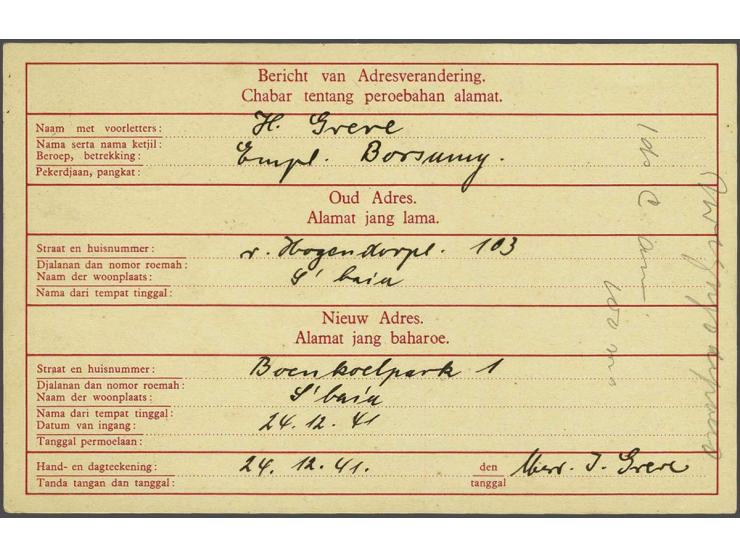 Bericht van Adresverandering.
Chabar tentang peroebahan alamat.
Naam met voorletters: H. Greve
Nama serta nama ketjil:
Beroep, betrekking: Empl. Borsumy.
Pekerdjaan, pangkat:
Oud Adres.
Alamat jang lama.
Straat en huisnummer: v. Hogendorpl. 103
Djalanan dan nomor roemah:
Naam der woonplaats: S'baia
Nama dari tempat tinggal:
Nieuw Adres.
Alamat jang baharoe.
Straat en huisnummer: Boenkoelpark 1
Djalanan dan nomor roemah:
Naam der woonplaats: S'baia
Nama dari tempat tinggal:
Datum van ingang: 24.12.41
Tanggal permoelaan:
Hand- en dagteekening: 24.12.41. den J. Greve
Tanda tangan dan tanggal: tanggal